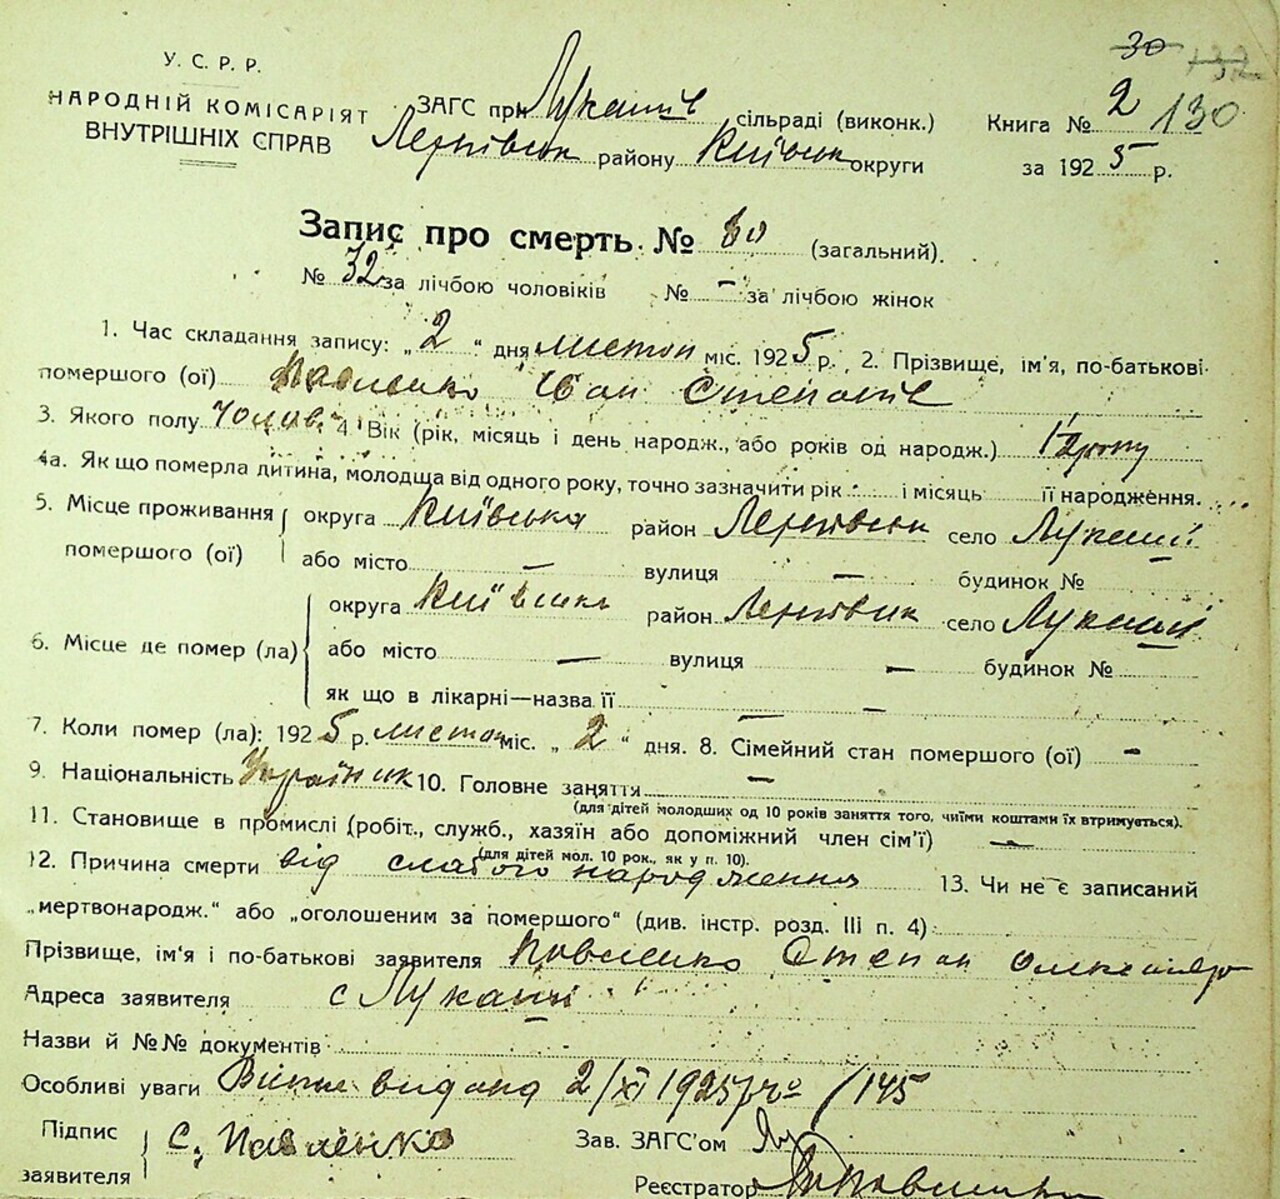 30
У. С. Р. Р.
НАРОДНІЙ КОМІСАРІЯТ
ВНУТРІШНІХ СПРАВ
ЗАГС при Лукашів сільраді (виконк.)
району Київськ округи
Книга № 2 130
за 1925 р.
Запис про смерть № (загальний).
№ 32 за лічбою чоловіків № – за лічбою жінок
1. Час складання запису: „2“ дня листоп міс. 1925 р. 2. Прізвище, ім'я, по-батькові
помершого (ої) Павленко Іван Степанів
3. Якого полу чолов. 4. Вік (рік, місяць і день народж., або років од народж.)
4а. Як що померла дитина, молодща від одного року, точно зазначити рік і місяць її народження.
5. Місце проживання помершого (ої)
округа Київська район село Лукаші
або місто – вулиця – будинок №
6. Місце де помер (ла)
округа Київська район село Лукаші
або місто – вулиця – будинок №
як що в лікарні—назва її –
7. Коли помер (ла): 1925 р. листоп міс. „2“ дня. 8. Сімейний стан помершого (ої) –
9. Національність Українк 10. Головне заняття –
(для дітей молодших од 10 років заняття того, чиїми коштами їх втримується).
11. Становище в промислі (робіт., служб., хазяїн або допоміжний член сім'ї) –
(для дітей мол. 10 рок., як у п. 10).
12. Причина смерти від слабого народження 13. Чи не є записаний
„мертвонародж.“ або „оголошеним за помершого“ (див. інстр. розд. III п. 4)
Прізвище, ім'я і по-батькові заявителя Павленко Степан Олександро
Адреса заявителя с Лукаші
Назви й №№ документів
Особливі уваги видана 2/XI 1925 /145
Підпис заявителя С. Павленко
Зав. ЗАГС'ом
Реєстратор